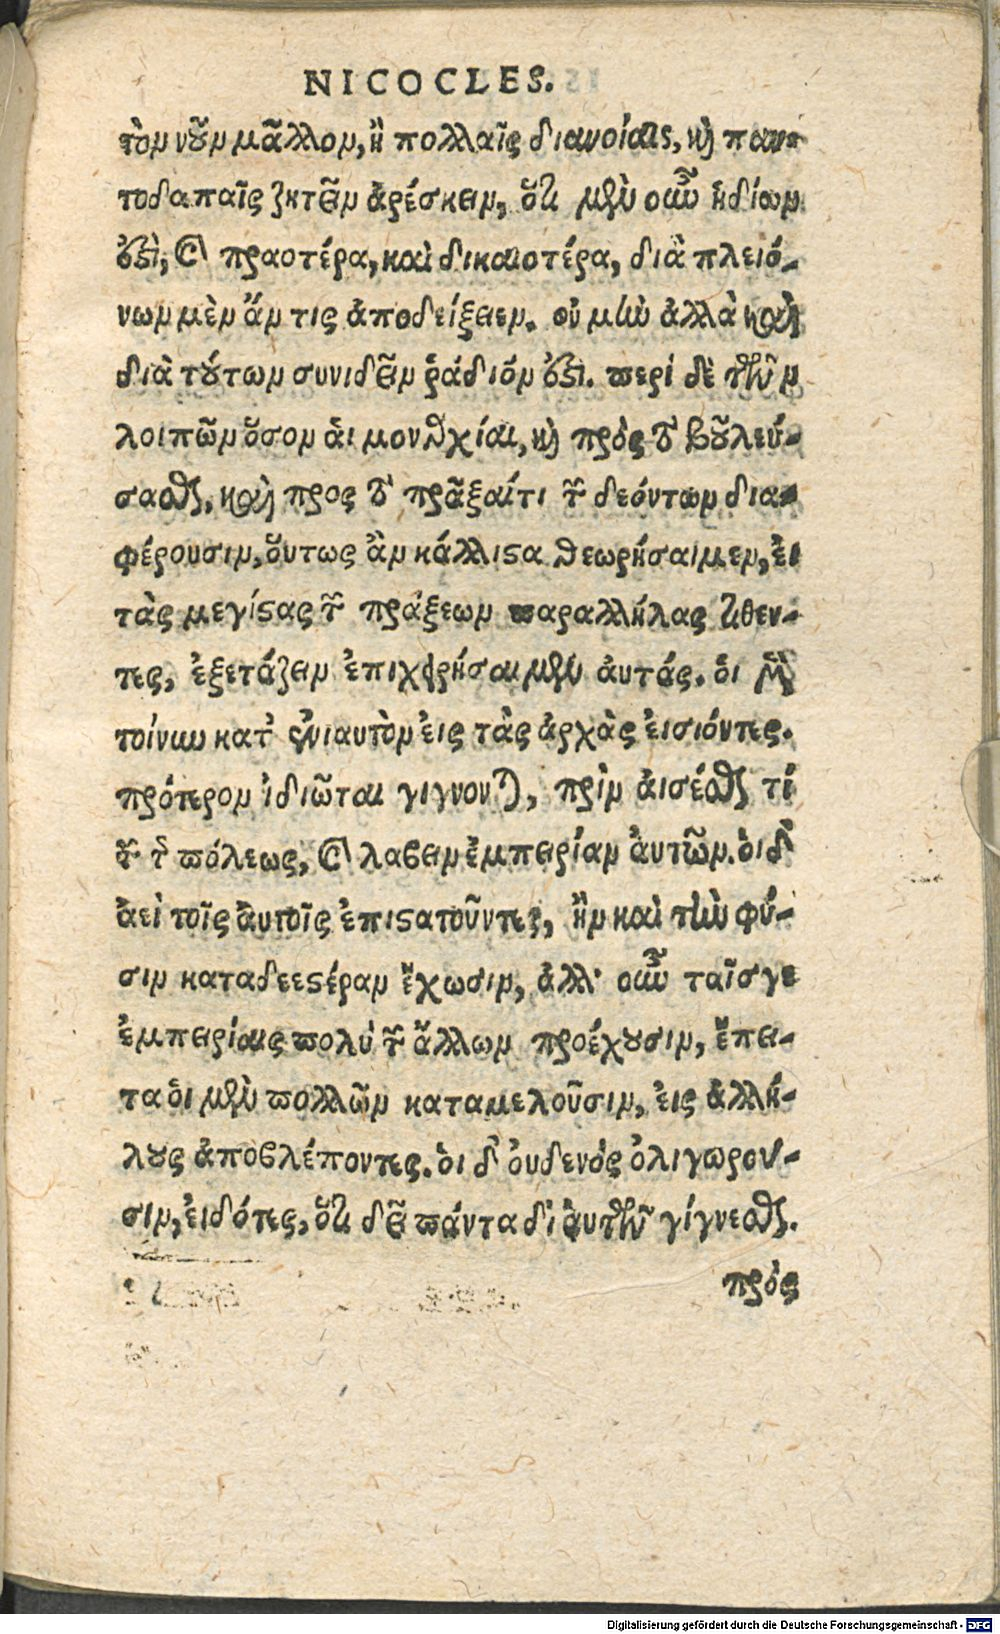 NICOCLES.
τὸν νοῦν μᾶλλον, ἢ πολλαῖς διανοίαις, καὶ παν-
τοδαπαῖς ζητεῖν ἀρέσκειν, ὅτι μὲν οὖν ἡδίων
ἐστὶ, καὶ πραοτέρα, καὶ δικαιοτέρα, διὰ πλειό-
νων μὲν ἄν τις ἀποδείξειεν. οὐ μὴν ἀλλὰ καὶ
διὰ τούτων συνιδεῖν ῥάδιόν ἐστι. περὶ δὲ τῶν
λοιπῶν ὅσον ἁι μοναρχίαι, καὶ πρὸς τὸ βουλεύ-
σασθαι, καὶ προς τὸ πρᾶξαί τι τῶν δεόντων δια-
φέρουσιν, ὅυτως ἂν κάλλιστα θεωρήσαιμεν, ἐι
τὰς μεγίστας τῶν πράξεων παραλλήλας τιθεν-
τες, ἐξετάζειν ἐπιχειρήσαιμεν ἀυτάς. ὁι μὲν
τοίνυν κατ' ἐνιαυτὸν ἐις τὰς ἀρχὰς ἐισιόντες.
πρότερον ἰδιῶται γίγνονται, πρὶν ἀισέσθαι τί
τῶν τῆς πόλεως, καὶ λαβειν ἐμπειρίαν ἀυτῶν. ὁι δ'
ἀεὶ τοῖς ἀυτοῖς ἐπιστατοῦντες, ἢν καὶ τὴν φύ-
σιν καταδεεστέραν ἔχωσιν, ἀλλ' οὖν ταῖσ γε
ἐμπειρίαις πολὺ τῶν ἄλλων προέχουσιν, ἔπει-
τα ὁι μὲν πολλῶν καταμελοῦσιν, ἐις ἀλλή-
λους ἀποβλέποντες. ὁι δ' ὀυδενὸς ὀλιγωροῦ-
σιν, ἐιδότες, ὅτι δεῖ πάντα δι' ἀυτῶν γίγνεσθαι.
πρὸς
Digitalisierung gefördert durch die Deutsche Forschungsgemeinschaft - DFG